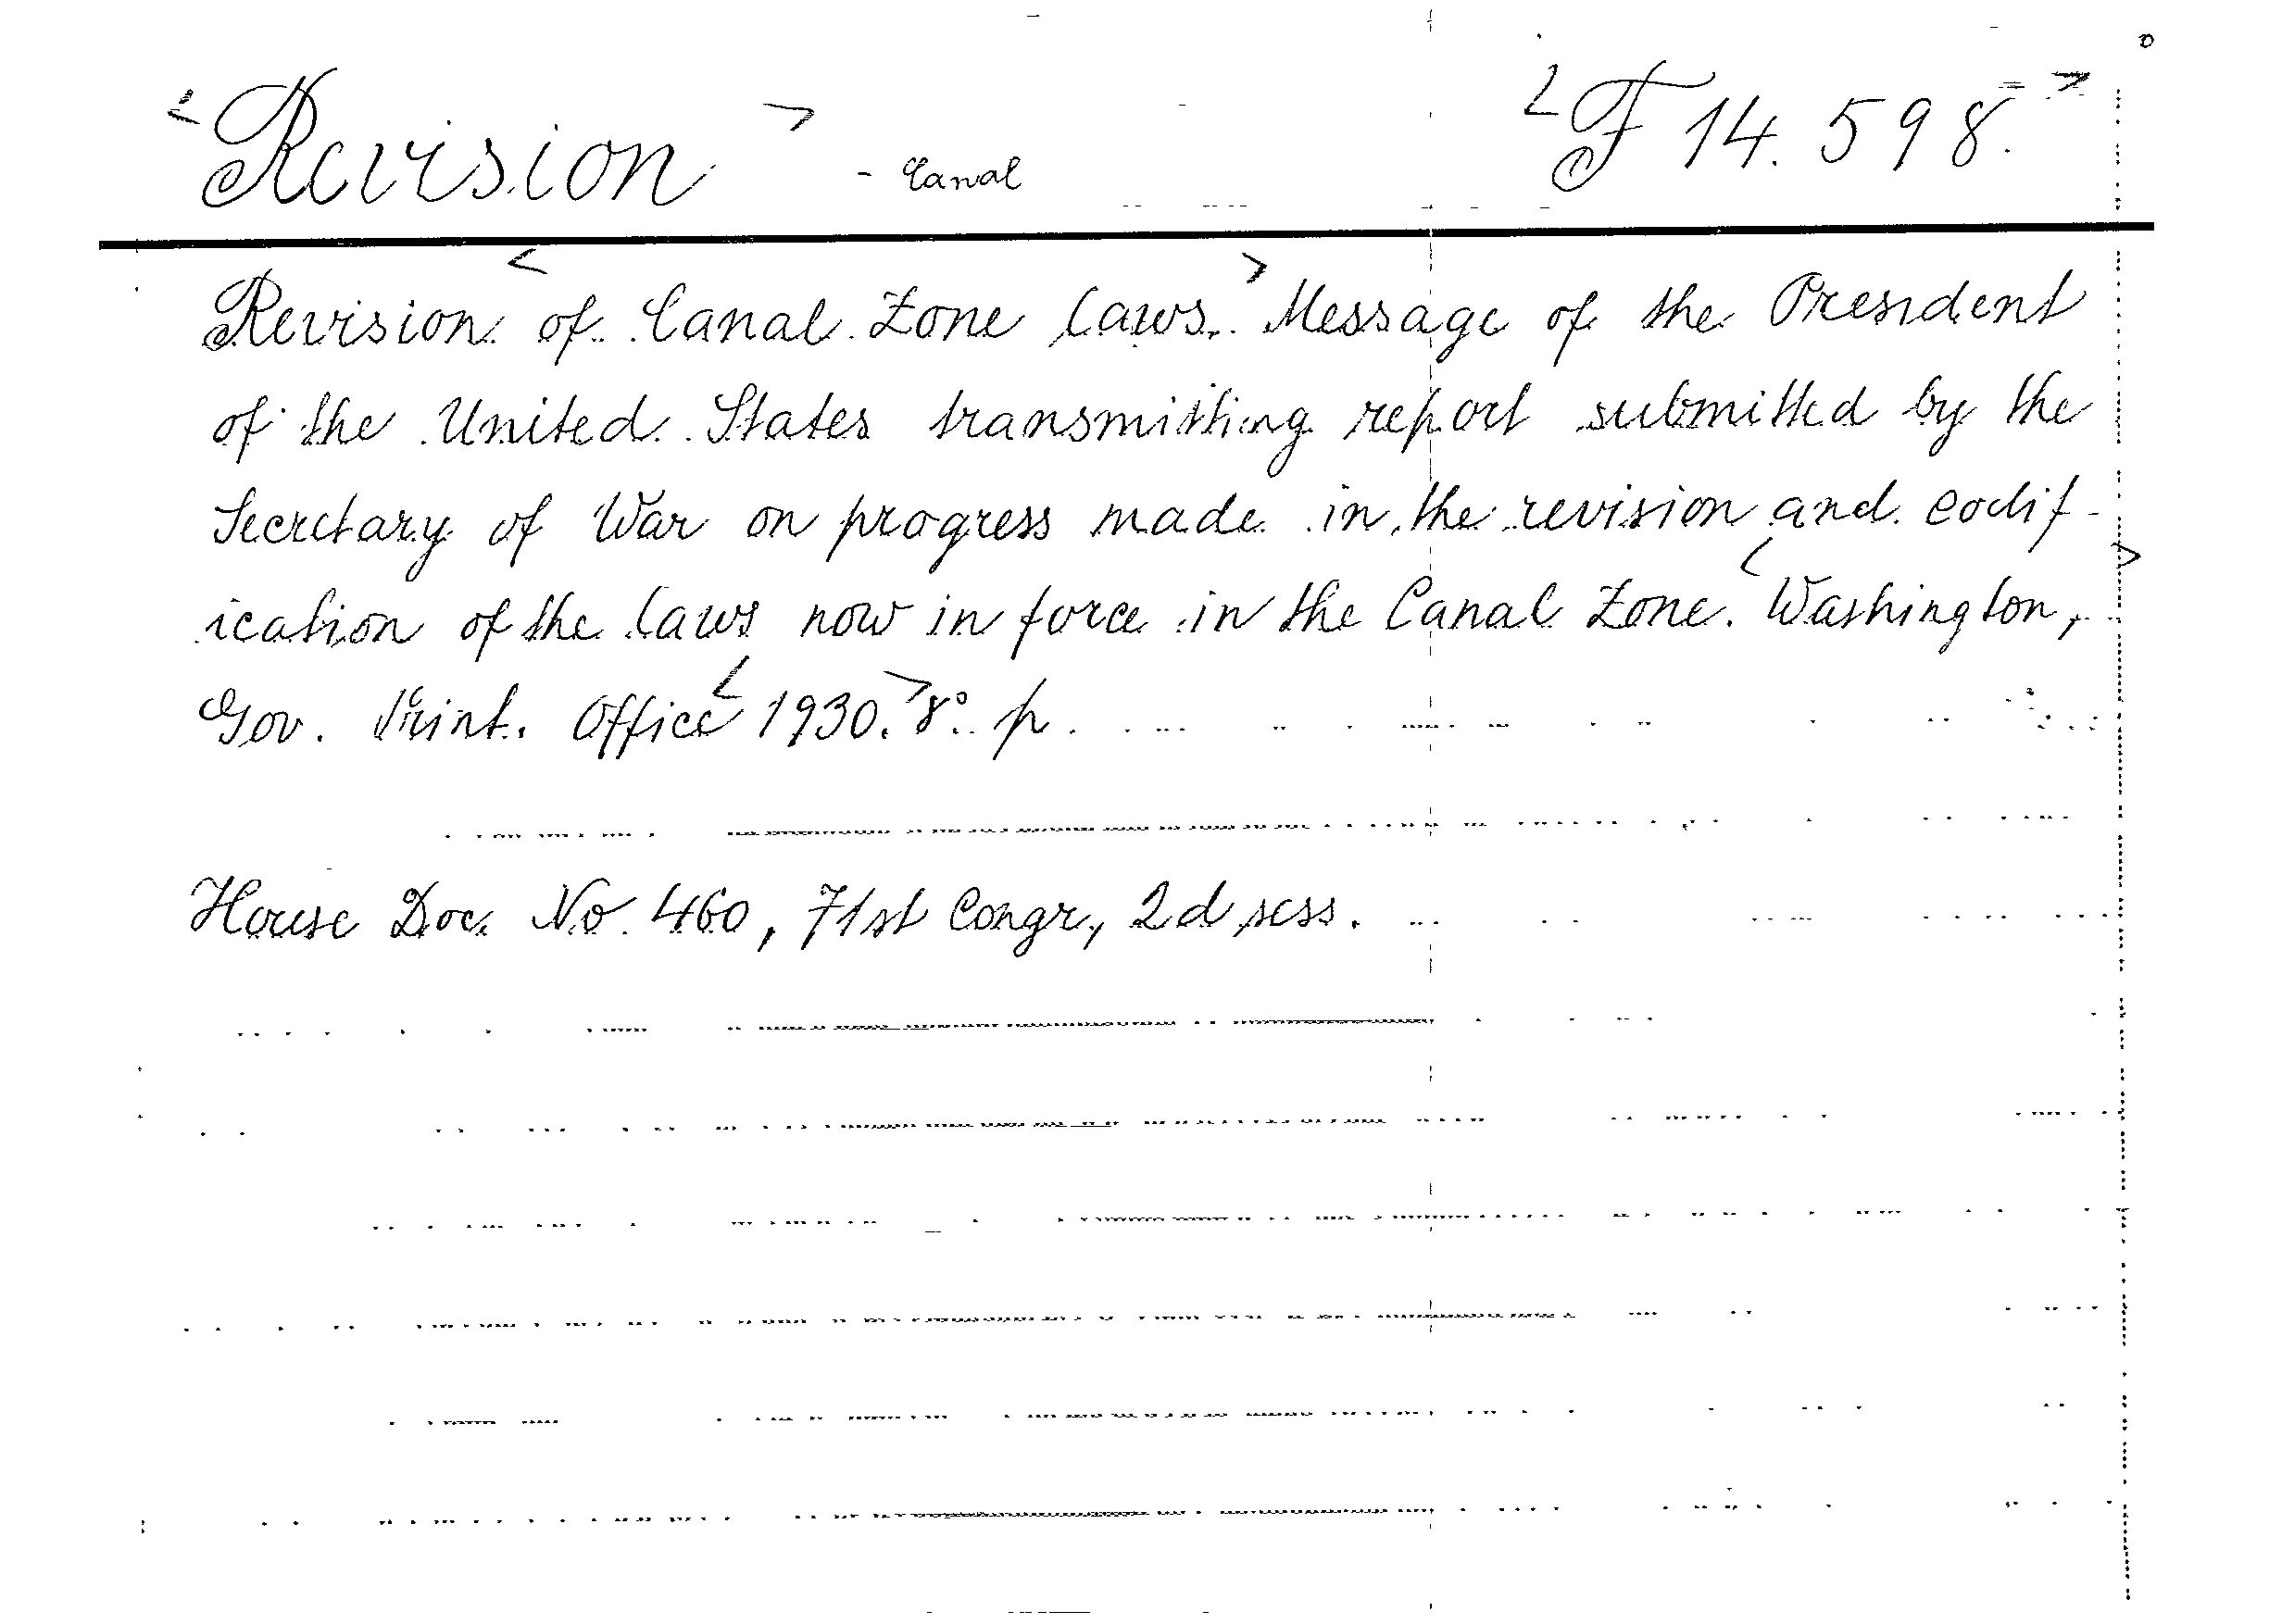 <Revision> - Canal <F 14.598.>
Revision <of Canal Zone laws.> Message of the President
of the United States transmitting report submitted by the
Secretary of War on progress made in the revision and codif-
ication of the laws now in force in the Canal Zone. <Washington,>
Gov. Print. Office <1930.> 8° p.
House Doc. No. 460, 71st Congr., 2d sess.